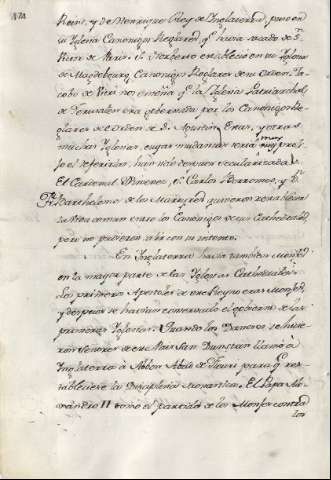 Reims, y de Henrique Rey de Inglaterra, puso en
su Iglesia Canonigos Reglares, q̃ havia sacado de Sn.
de Paris. Sn. Norberto establecio en su Iglesia
de Magdebourg Canonigos Reglares de su Orden. Ja-
cobo de Vitri nos enseña q̃ la Iglesia Patriarchal
de Jerusalen era gobernada por los Canonigos Re-
glares del Orden de S. Agustin. Estas, y otras
muchas Iglesias, cuyas mudanzas seria muy proli-
jo el referirlas, han sido despues secularizadas.
El Cardenal Ximenez, Sn. Carlos Borromeo, y Dn.
Fr. Bartholome de los Martyres quisieron restablecer
la vida comun entre los Canonigos de sus Cathedrales,
pero no pudieron salir con su intento.
En Inglaterra havia tambien Monges
en la mayor parte de las Iglesias Cathedrales.
Los primeros Apostoles de este Reyno eran Monges,
y despues se havian conservado el gobierno de las
primeras Iglesias. Quando los Daneses se hicie-
ron Señores de este Pais San Dunstan llamó à
Inglaterra à Abbon Abad de Fleuri para q̃ res-
tableciese la Disciplina Monastica. El Papa Ale-
xandro II tomo el partido de los Monges contra
los